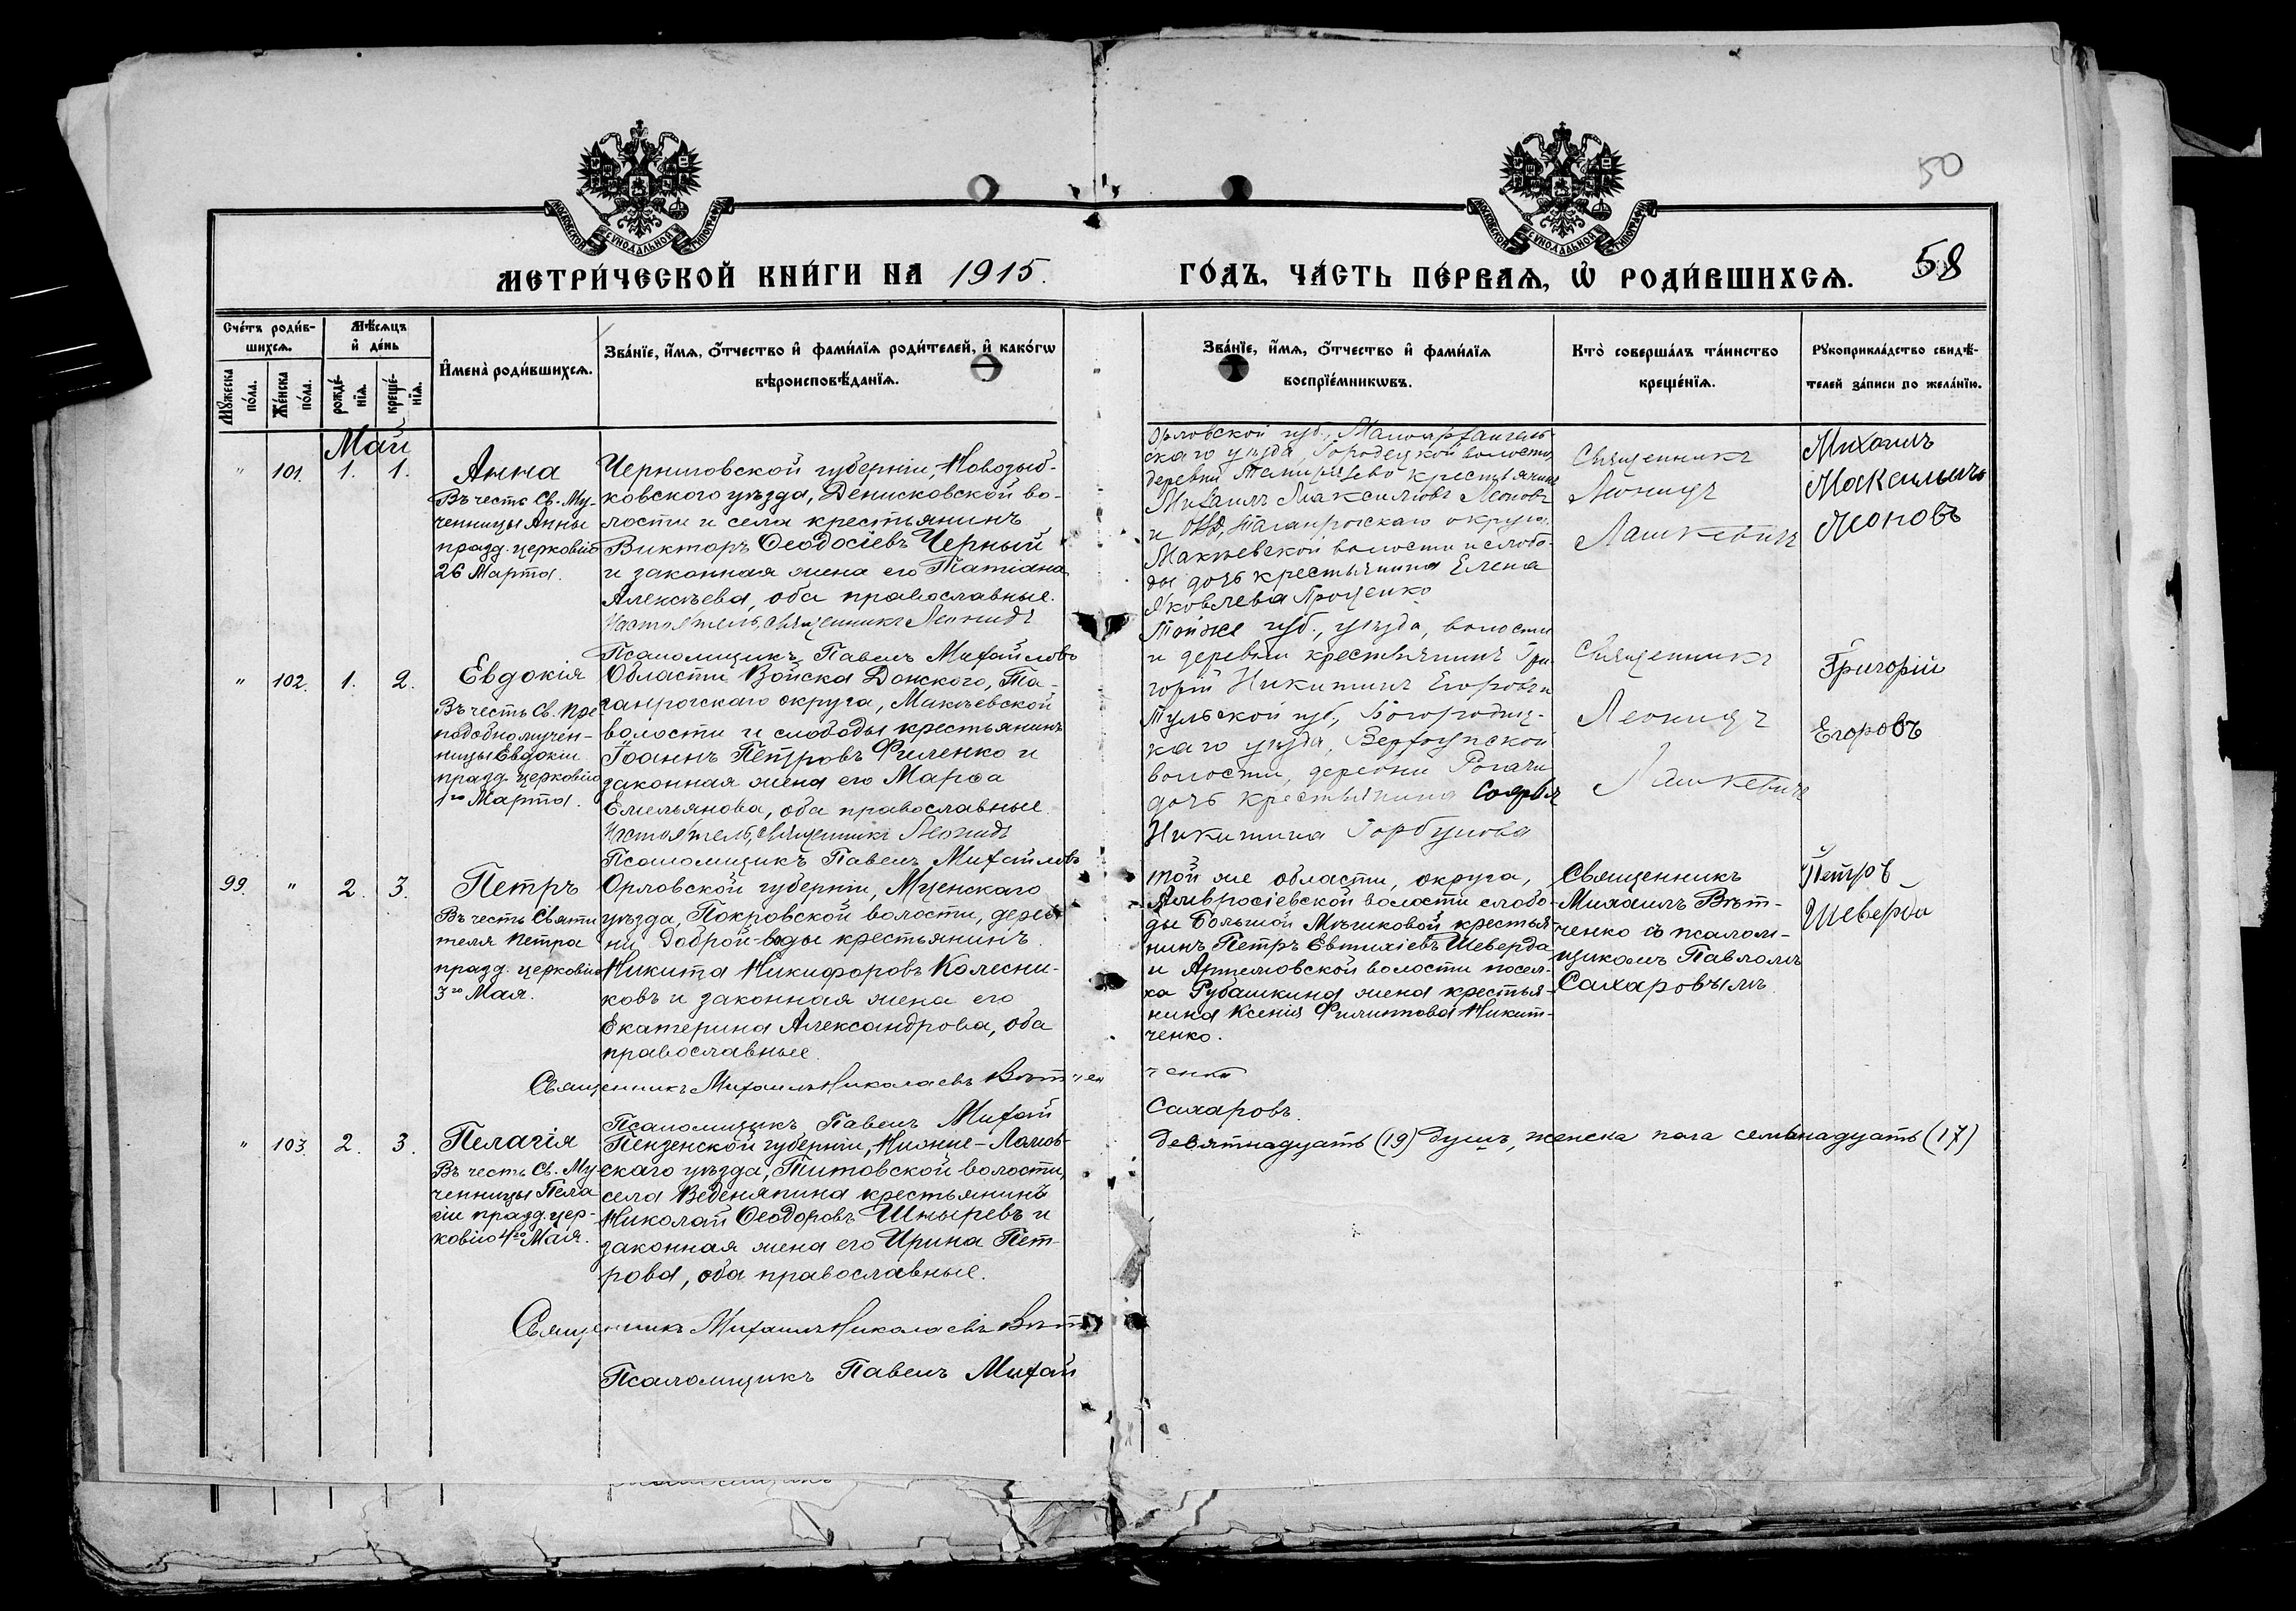 50
58
МОСКОВСКОЙ СѴНОДАЛЬНОЙ ТИПОГРАФІИ
МОСКОВСКОЙ СѴНОДАЛЬНОЙ ТИПОГРАФІИ
МЕТРИ́ЧЕСКОЙ КНИ́ГИ НА 1915. ГО́ДЪ, ЧА́СТЬ ПЕ́РВАѦ, Ѡ҆ РОДИ́ВШИХСѦ.
Сче́тъ роди́в-
шихсѧ.
Мꙋ́жеска
по́ла.
Же́нска
по́ла.
Мѣ́сѧцъ
и҆ де́нь
рожде́-
нїѧ.
креще́-
нїѧ.
И҆мена̀ роди́вшихсѧ.
Зва́нїе, и҆́мѧ, ѻ҆́тчество и҆ фами́лїѧ роди́телей, и҆ како́гѡ
вѣроисповѣ́данїѧ.
Зва́нїе, и҆́мѧ, ѻ҆́тчество и҆ фами́лїѧ
воспрїе́мникѡвъ.
Кто̀ соверша́лъ та́инство
креще́нїѧ.
Рꙋкоприкла́дство свидѣ́-
телей за́писи по жела́нїю.
Май
" 101. 1. 1.
Анна
Въ честь Св. Му-
ченницы Анны
празд. церковію
26 Марта.
Черниговской губерніи, Новозыб-
ковского уѣзда, Денисковской во-
лости и села крестьянинъ
Викторъ Ѳеодосіевъ Черный
и законная жена его Татіана
Алексѣева, оба православные.
Настоятель, священникъ Леонидъ
Псаломщикъ Павелъ Михайловъ
Орловской губ., Малоархангель-
скаго уѣзда, Городецкой волости
деревни крестьянинъ
Михаилъ Максимовъ Леоновъ
и Обл., Таганрогскаго округа
Макѣевской волости и слобо-
ды дочь крестьянина Елена
Яковлева Проценко
Священникъ
Леонидъ
Лашкевичъ
Михаилъ
Максимычъ
Леоновъ
" 102. 1. 2.
Евдокія
Въ честь Св. Пре
подобномучен-
ницы Евдокіи
празд. церковію
1го Марта.
Области Войска Донского, Та-
ганрогскаго округа, Макѣевской
волости и слободы крестьянинъ
Іоаннъ Петровъ Филенко и
законная жена его Марѳа
Емельянова, оба православные
Настоятель, священникъ Леонидъ
Псаломщикъ Павелъ Михайловъ
Той же губ., уѣзда, волости
и деревни крестьянинъ Гри-
горій Никитинъ Егоровъ и
Тульской губ., Богородиц-
каго уѣзда, Верхоупской
волости, деревни Рогачи
дочь крестьянина Софья
Никитина Горбунова
Священникъ
Леонидъ
Лашкевичъ
Григорій
Егоровъ
99. " 2. 3.
Петръ
Въ честь Святи
теля Петра
празд. церковію
3го Мая.
Орловской губерніи, Мценскаго
уѣзда, Покровской волости, дерев
ни Доброй-воды крестьянинъ
Никита Никифоровъ Колесни-
ковъ и законная жена его
Екатерина Александрова, оба
православные.
Священникъ Михаилъ Николаевъ Вѣтчен
Псаломщикъ Павелъ Михай
той же области, округа,
Амвросіевской волости слобо-
ды Большой Мѣшковой крестья-
нинъ Петръ Евтихіевъ Шеверда
и Артемовской волости посел-
ка Рубашкина жена крестья-
нина Ксенія Филиппова Никит-
ченко.
ченко
Сахаровъ.
Священникъ
Михаилъ Вѣт-
ченко съ псалом-
щикомъ Павломъ
Сахаровымъ
Петръ
Шеверда
" 103. 2. 3.
Пелагія
Въ честь Св. Му
ченницы Пела
гіи празд. цер-
ковію 4го Мая.
Пензенской губерніи, Нижне-Ломов-
скаго уѣзда, Титовской волости,
села Веденяпина крестьянинъ
Николай Ѳеодоровъ Шныревъ и
законная жена его Ирина Пет-
рова, оба православные.
Священникъ Михаилъ Николаевъ Вѣт
Псаломщикъ Павелъ Михай
девятнадцать (19) душъ, женска пола семьнадцать (17)